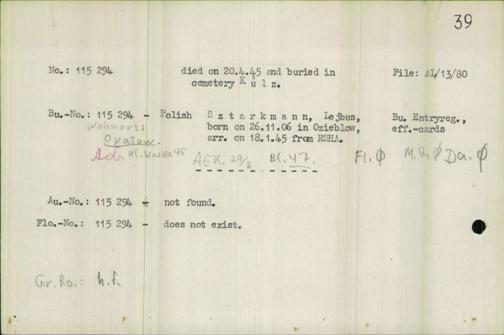 39
No.: 115 294 died on 20.4.45 and buried in File: AI/13/80
cemetery Külz.
Bu.-No.: 115 294 - Polish Sztarkmann, Lejbus, Bu. Entryreg.,
Wohnorts born on 26.11.06 in Ozieblow, eff.-cards
Opatow. arr. on 18.1.45 from RSHA.
AEK. 29/3 Bl. 47. Fl. Ø M. Ø Da. Ø
Au.-No.: 115 294 - not found.
Flo.-No.: 115 294 - does not exist.
Gr. Ro.: n.f.